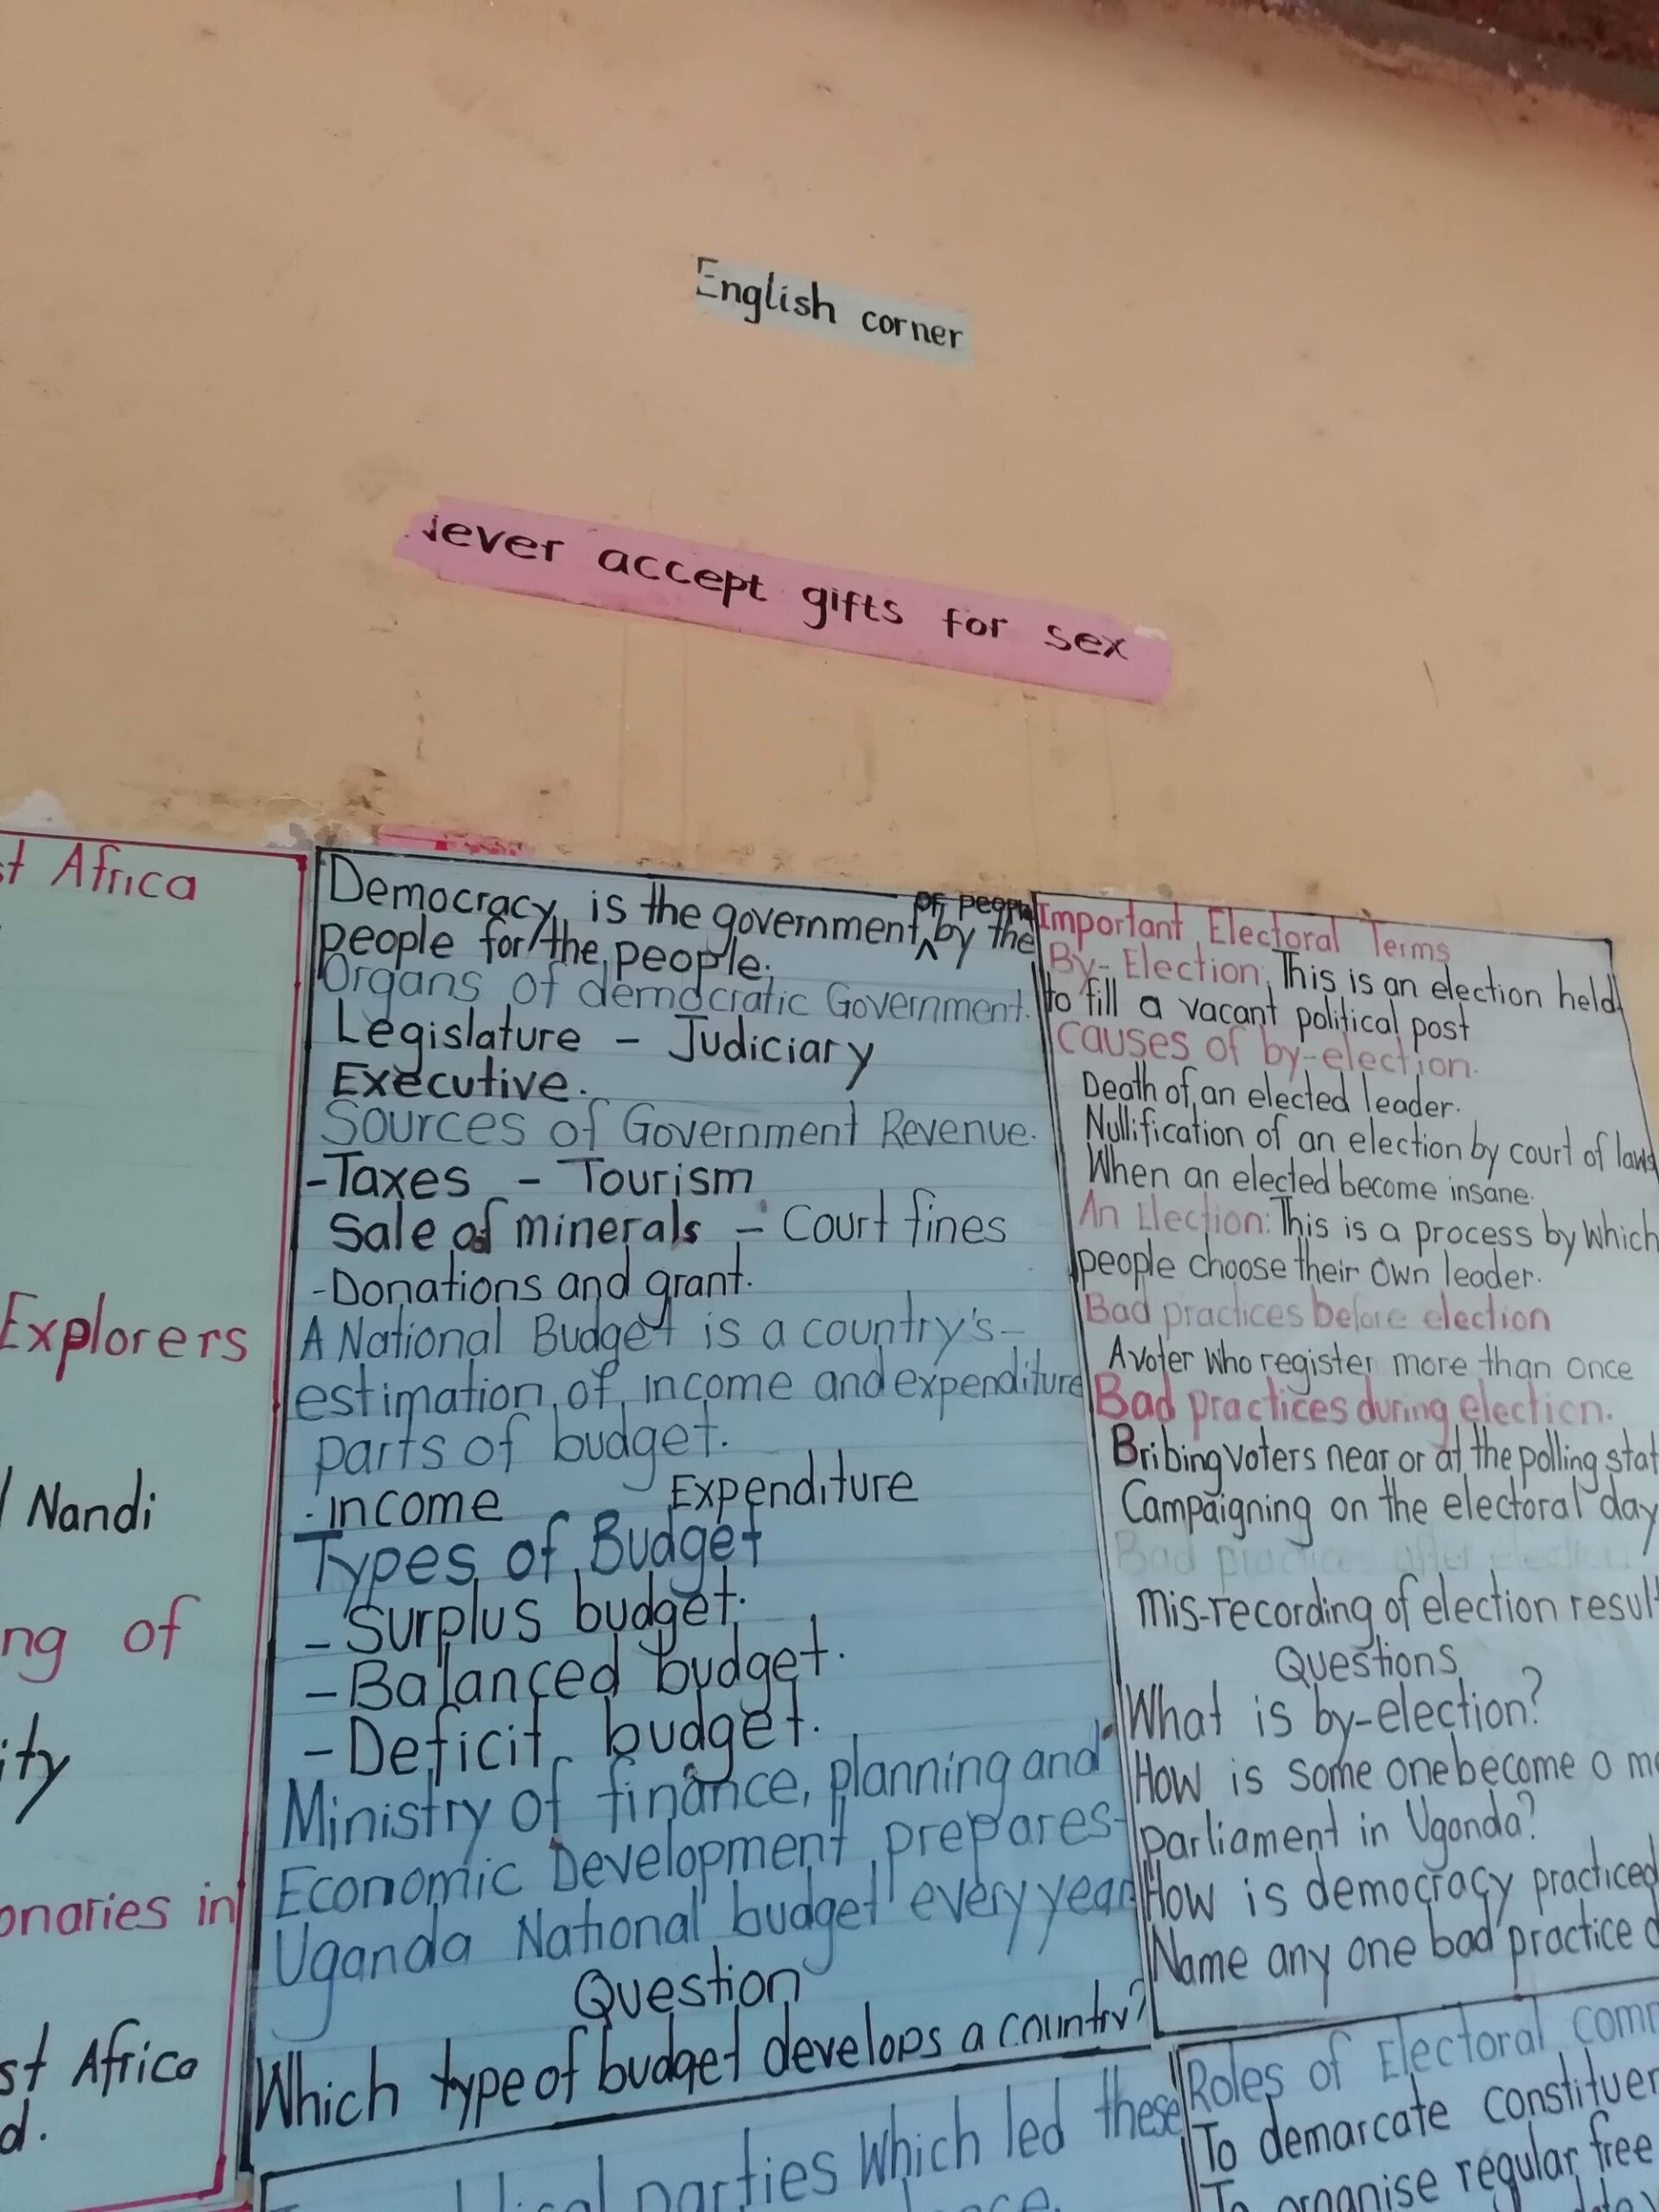 English corner
Never accept gifts for sex
st Africa
Explorers
Nandi
ng of
ity
onaries in
st Africa
d.
Democracy is the government of people by the
people for the people.
Organs of democratic Government.
Legislature - Judiciary
Executive.
Sources of Government Revenue.
-Taxes - Tourism
Sale of minerals - Court fines
-Donations and grant.
A National Budget is a country's-
estimation of income and expenditure
parts of budget.
.income Expenditure
Types of Budget
-Surplus budget.
-Balanced budget.
-Deficit budget.
Ministry of finance, planning and
Economic Development prepares-
Uganda National budget every year
Question
Which type of budget develops a country?
Important Electoral Terms
By-Election: This is an election held
to fill a vacant political post
Causes of by-election.
Death of an elected leader.
Nullification of an election by court of laws
When an elected become insane.
An Election: This is a process by which
people choose their own leader.
Bad practices before election
A voter who register more than once
Bad practices during election.
Bribing voters near or at the polling stat
Campaigning on the electoral day
Bad practices after election
Mis-recording of election result
Questions
What is by-election?
How is some one become a me
parliament in Uganda?
How is democracy practiced
Name any one bad practice
parties which led these
Roles of Electoral comm
To demarcate constituen
To organise regular free